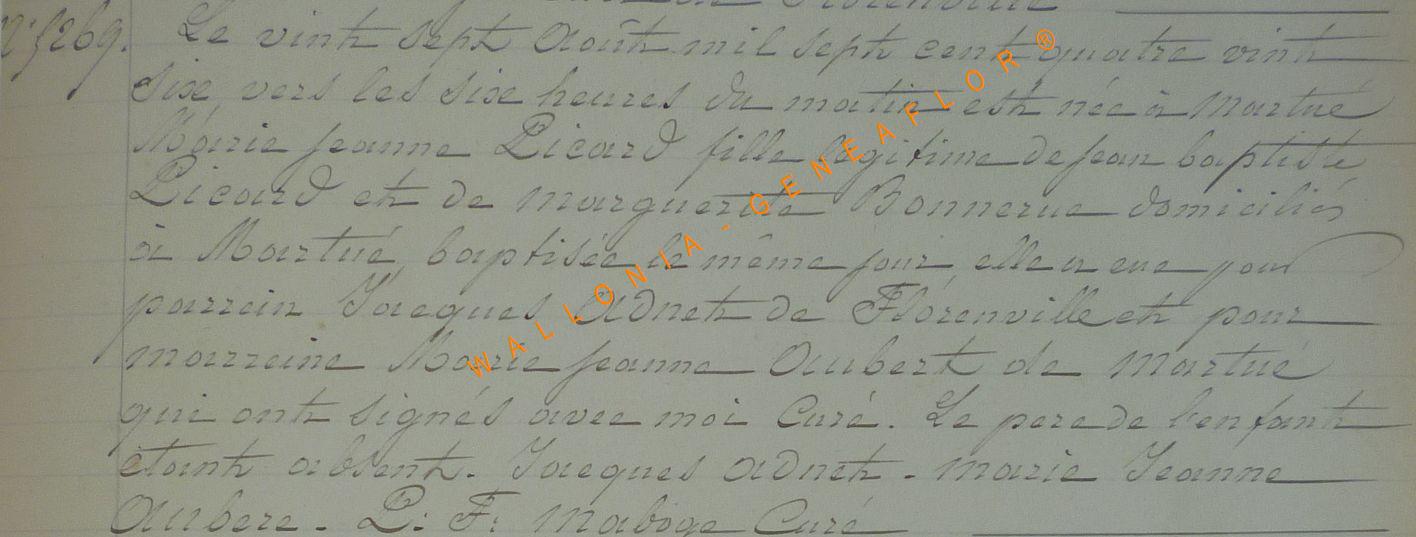 N° 5269. Le vint sept Août mil sept cent quatre vint
six, vers les six heures du matin est née à Martué
Marie Jeanne Picard fille légitime de Jean baptiste
Picard et de Marguerite Bonnerue domiciliés
à Martué, baptisée le même jour, elle a eue pour
parrein Jacques Adnet de Florenville et pour
marreine Marie Jeanne Aubert de Martué
qui ont signés avec moi Curé. Le pere de l'enfant
étant absent. Jacques Adnet - Marie Jeanne
Aubere - P: F: Maboge Curé
WALLONIA - GENEAFLOR ®